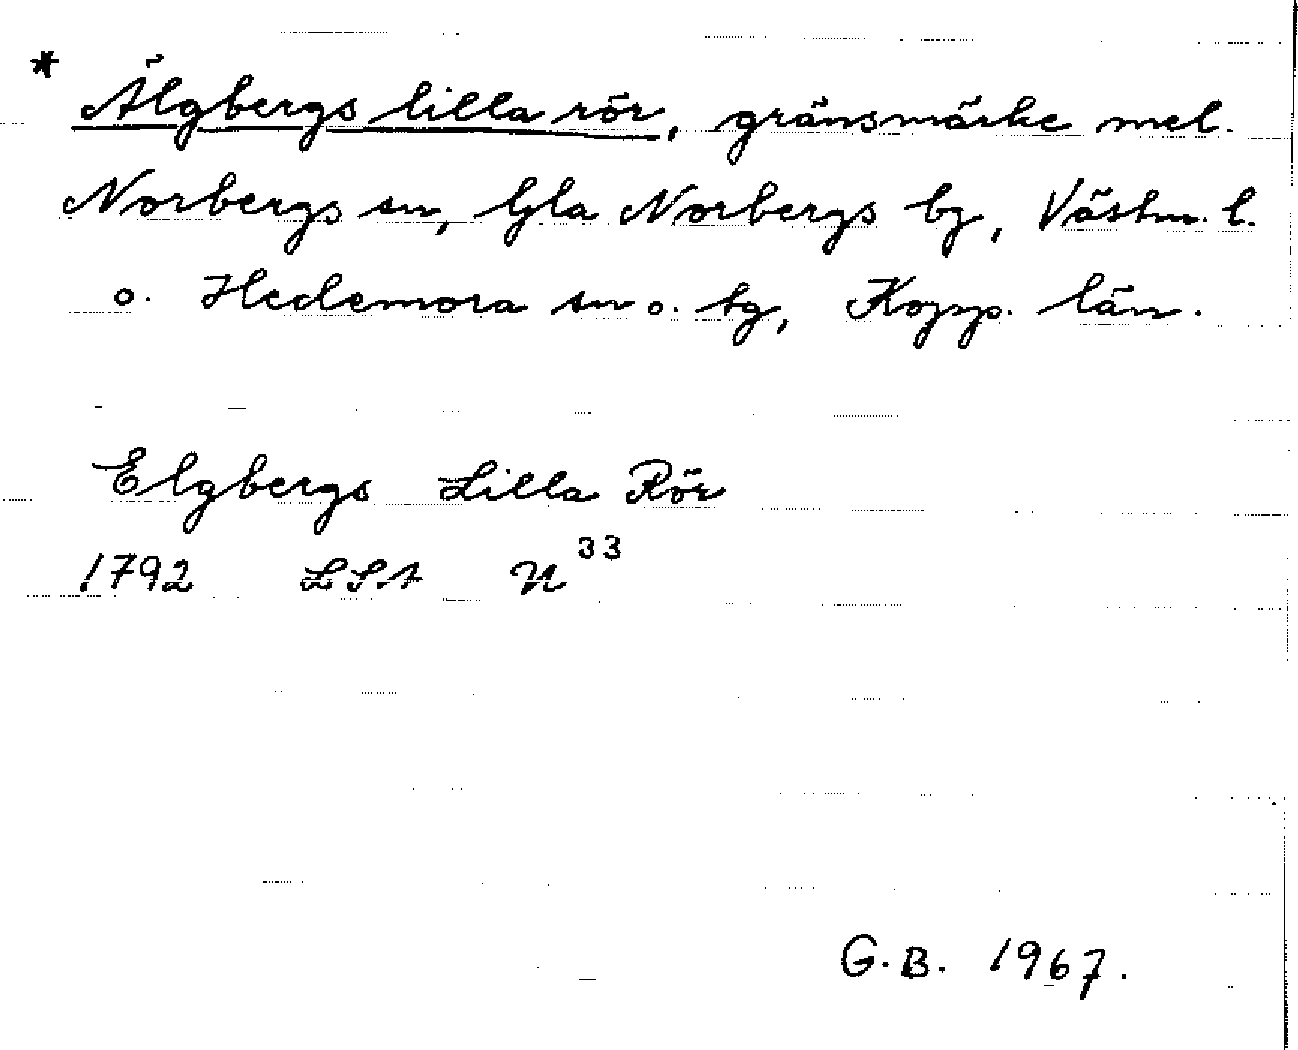 * Älgbergs lilla rör, gränsmärke mel.
Norbergs sn, Gla Norbergs bg, Västm. l.
o. Hedemora sn o. tg, Kopp. län.
Elgbergs Lilla Rör
1792 LSA U 33
G.B. 1967.